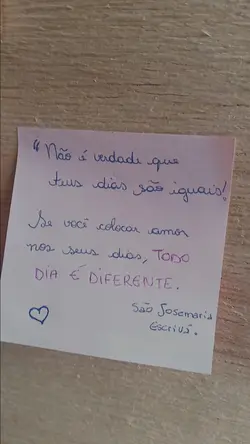 "Não é verdade que
teus dias são iguais!
Se você colocar amor
nos seus dias, TODO
DIA É DIFERENTE.
São Josemaria
Escrivá.